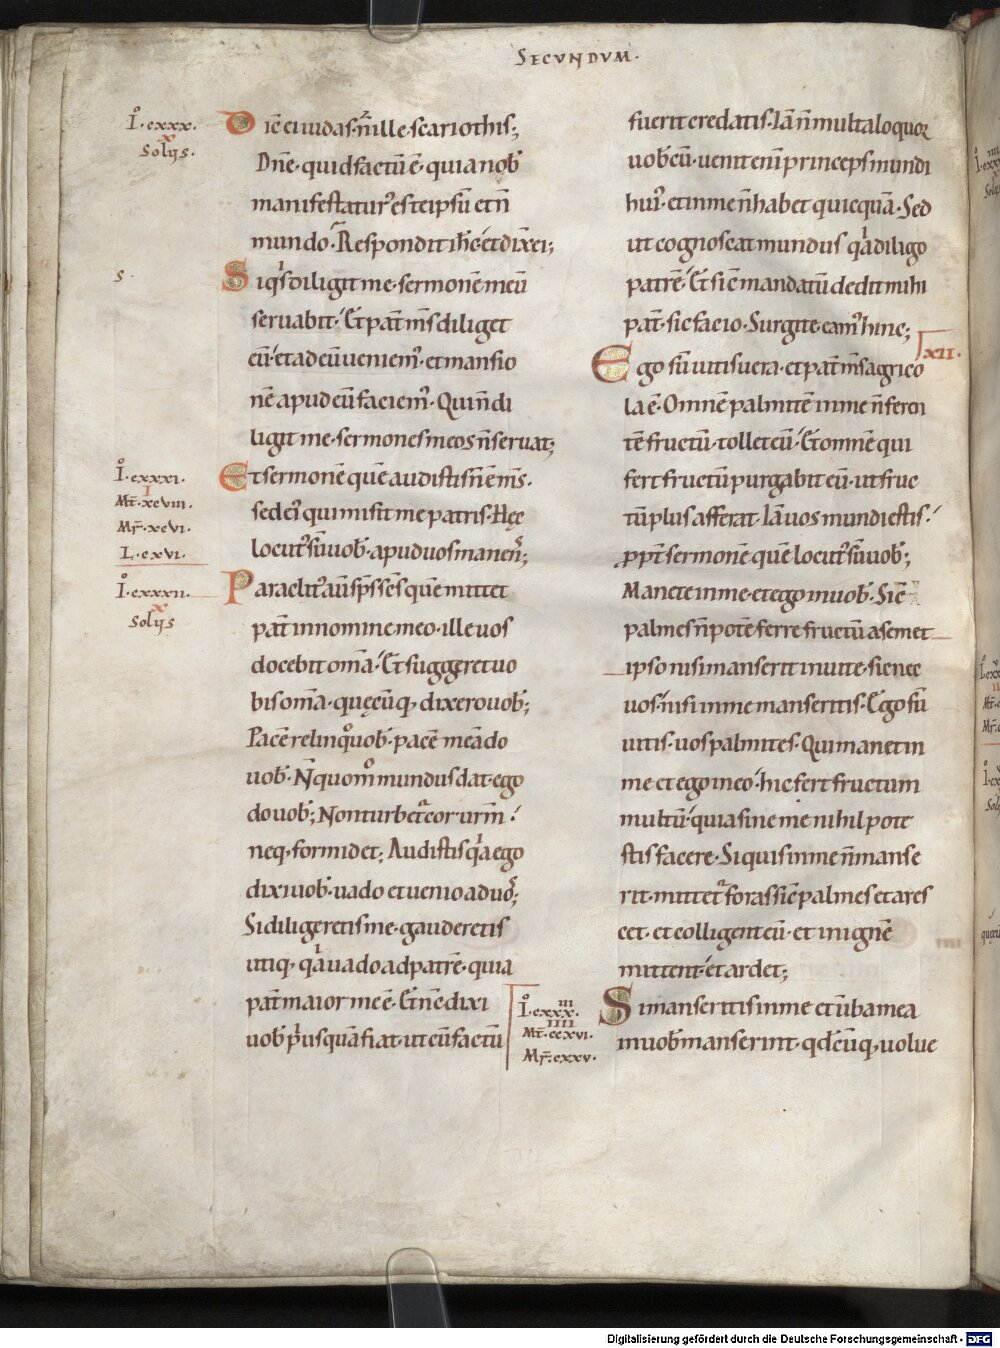 SECVNDVM·
Io·cxxx·
x
Solus·
Dic̄ ei iudas· n̄ ille scariothis;
Dn̄e· quid factū ē· quia nob̄
manifestatur᾽ es teipsū et n̄
mundo· Respondit ih̄c· et dixit ei;
S·
Si q̇s diligit me· sermonē meū
seruabit· Et pat̄ m̄s diliget
eū· et ad eū ueniem᾽· et mansio
nē apud eū faciem᾽· Qui n̄ di
ligit me· sermones meos n̄ seruat;
Io·cxxxi·
I
Mt̄·xcviii·
Mr̄·xcvi·
L·cxvi·
Et sermonē quē audistis n̄ ē m̄s·
sed ei᾽ qui misit me patris· Hęc
locut᾽ sū uob̄· apud uos manen̄s;
Io·cxxxii·
x
Solus
Paraclit᾽ aū sp̄s sc̄s quē mittet
pat̄ in nomine meo· ille uos
docebit om̄a· Et suggeret uo
bis om̄a· quęcūq; dixero uob̄;
Pacē relinquo uob̄· pacē meā do
uob̄· N̄ quom̊ mundus dat· ego
do uob̄; Non turbet᾽ cor ur̄m·
neq; formidet; Audistis q̇a ego
dixi uob̄· uado et uenio ad uos;
Si diligeretis me· gauderetis
utiq; q̇a uado ad patrē· quia
pat̄ maior me ē· Et nc̄ dixi
uob̄ p̄usquā fiat· ut cū factū
fuerit credatis· Iā n̄ multa loquor
uob̄cū· uenit enī princeps mundi
hui᾽· et in me n̄ habet quicquā· Sed
ut cognoscat mundus q̇a diligo
patrē· Et sic̄ mandatū dedit mihi
pat̄· sic facio· Surgite eam᾽ hinc;
XII·
Ego sū uitis uera· et pat̄ m̄s agrico
la ē· Omnē palmitē in me n̄ feren
tē fructū· tollet eū· Et omnē qui
fert fructū purgabit eū· ut fruc
tū plus afferat· Iā uos mundi estis·
ꝓpt̄ sermonē quē locut᾽ sū uob̄;
Manete in me· et ego in uob̄· Sic̄
palmes n̄ potē ferre fructū a semet
ipso nisi manserit in uite· sic nec
uos· nisi in me manseritis· Ego sū
uitis· uos palmites· Qui manet in
me et ego in eo· hic fert fructum
multū· quia sine me nihil pote
stis facere· Si quis in me n̄ manse
rit· mittet᾽ foras sic̄ palmes et ares
cet· et colligent eū· et in ignē
mittent· et ardet;
Io·cxxx·iii
IIII
Mt̄·ccxvi·
Mr̄·cxxv·
Si manseritis in me et ūba mea
in uob̄ manserint· qdcūq; uolue
Digitalisierung gefördert durch die Deutsche Forschungsgemeinschaft - DFG